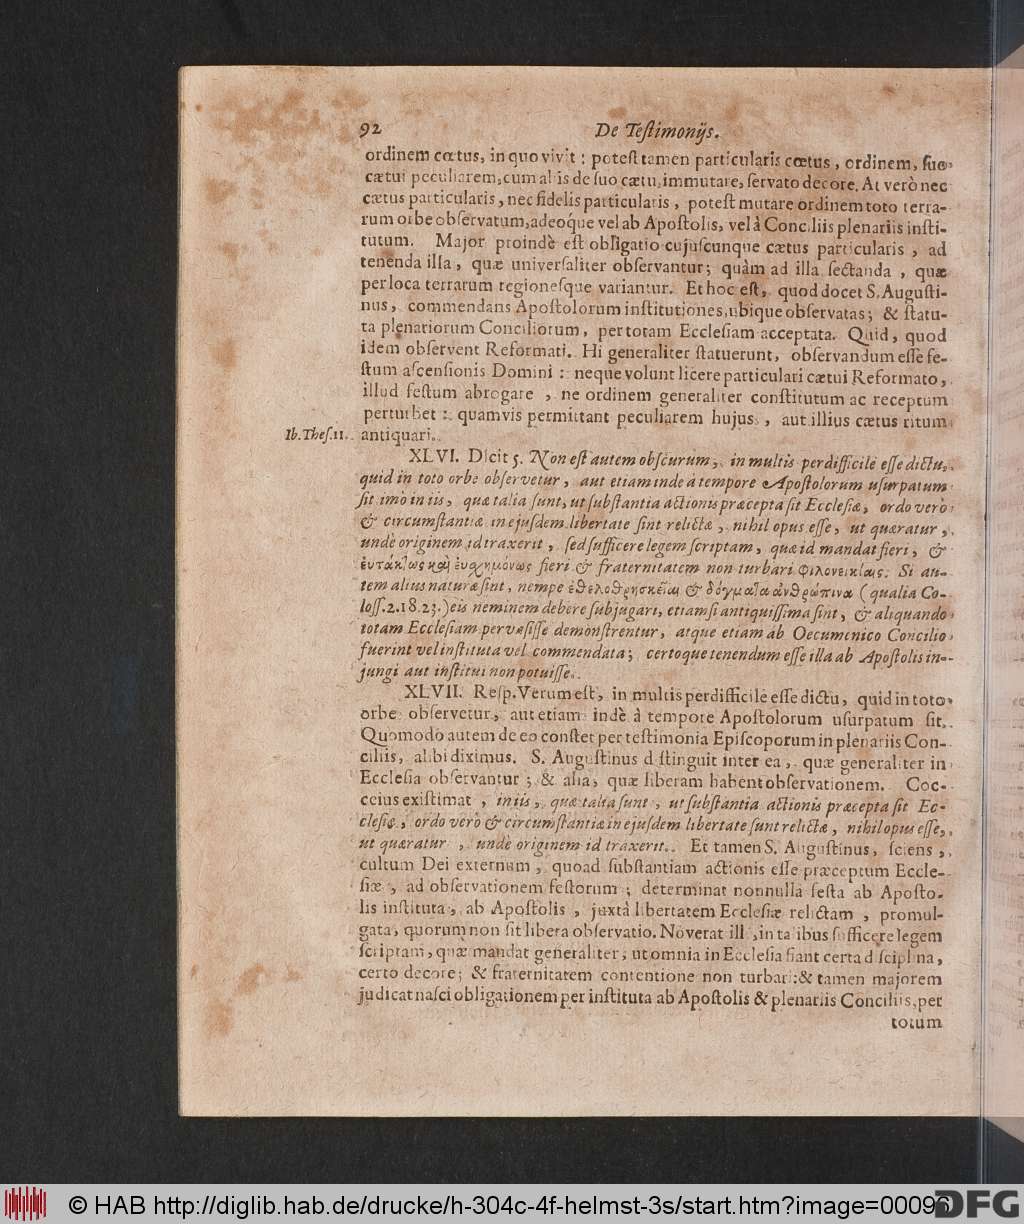 92 De Testimonijs.
ordinem cœtus, in quo vivit: potest tamen particularis cœtus, ordinem, suo
cætui peculiarem, cum aliis de suo cætu, immutare, servato decore. At verò nec
cætus particularis, nec fidelis particularis, potest mutare ordinem toto terra-
rum orbe observatum, adeoq́ue vel ab Apostolis, vel à Conciliis plenariis insti-
tutum. Major proindè est obligatio cujuscunque cætus particularis, ad
tenenda illa, quæ universaliter observantur; quàm ad illa sectanda, quæ
per loca terrarum regionesque variantur. Et hoc est, quod docet S. Augusti-
nus, commendans Apostolorum institutiones, ubique observatas; & statu-
ta plenariorum Conciliorum, per totam Ecclesiam acceptata. Quid, quod
idem observent Reformati. Hi generaliter statuerunt, observandum esse fe-
stum ascensionis Domini: neque volunt licere particulari cætui Reformato,
illud festum abrogare, ne ordinem generaliter constitutum ac receptum
perturbet: quamvis permittant peculiarem hujus, aut illius cætus ritum
Ib. Thes. 11. antiquari.
XLVI. Dicit 5. Non est autem obscurum, in multis perdifficile esse dictu,
quid in toto orbe observetur, aut etiam inde à tempore Apostolorum usurpatum
sit. imò in iis, quæ talia sunt, ut substantia actionis præcepta sit Ecclesiæ, ordo verò
& circumstantiæ in ejusdem libertate sint relictæ, nihil opus esse, ut quæratur,
undè originem id traxerit, sed sufficere legem scriptam, quæ id mandat fieri, &
ἐυτάκτως καὶ ἐυσχημόνως fieri & fraternitatem non turbari φιλονεικίαις. Si au-
tem alius naturæ sint, nempe ἐθελοθρησκεῖαι & δόγματα ἀνθρώπινα (qualia Co-
loss. 2. 18. 23.) eis neminem debere subjugari, etiamsi antiquissima sint, & aliquando
totam Ecclesiam pervasisse demonstrentur, atque etiam ab Oecumenico Concilio
fuerint vel instituta vel commendata; certoque tenendum esse illa ab Apostolis in-
jungi aut institui non potuisse.
XLVII. Resp. Verum est, in multis perdifficilè esse dictu, quid in toto
orbe observetur, aut etiam indè à tempore Apostolorum usurpatum sit.
Quomodo autem de eo constet per testimonia Episcoporum in plenariis Con-
ciliis, alibi diximus. S. Augustinus distinguit inter ea, quæ generaliter in
Ecclesia observantur; & alia, quæ liberam habent observationem. Coc-
ceius existimat, in iis, quæ talia sunt, ut substantia actionis præcepta sit Ec-
clesiæ, ordo verò & circumstantiæ in ejusdem libertate sunt relictæ, nihil opus esse,
ut quæratur, undè originem id traxerit. Et tamen S. Augustinus, sciens,
cultum Dei externum, quoad substantiam actionis esse præceptum Eccle-
siæ, ad observationem festorum; determinat nonnulla festa ab Aposto-
lis instituta, ab Apostolis, juxtà libertatem Ecclesiæ relictam, promul-
gata, quorum non sit libera observatio. Noverat ille, in talibus sufficere legem
scriptam, quæ mandat generaliter, ut omnia in Ecclesia fiant certa disciplina,
certo decore; & fraternitatem contentione non turbari: & tamen majorem
judicat nasci obligationem per instituta ab Apostolis & plenariis Conciliis, per
totum
© HAB http://diglib.hab.de/drucke/h-304c-4f-helmst-3s/start.htm?image=00096
DFG